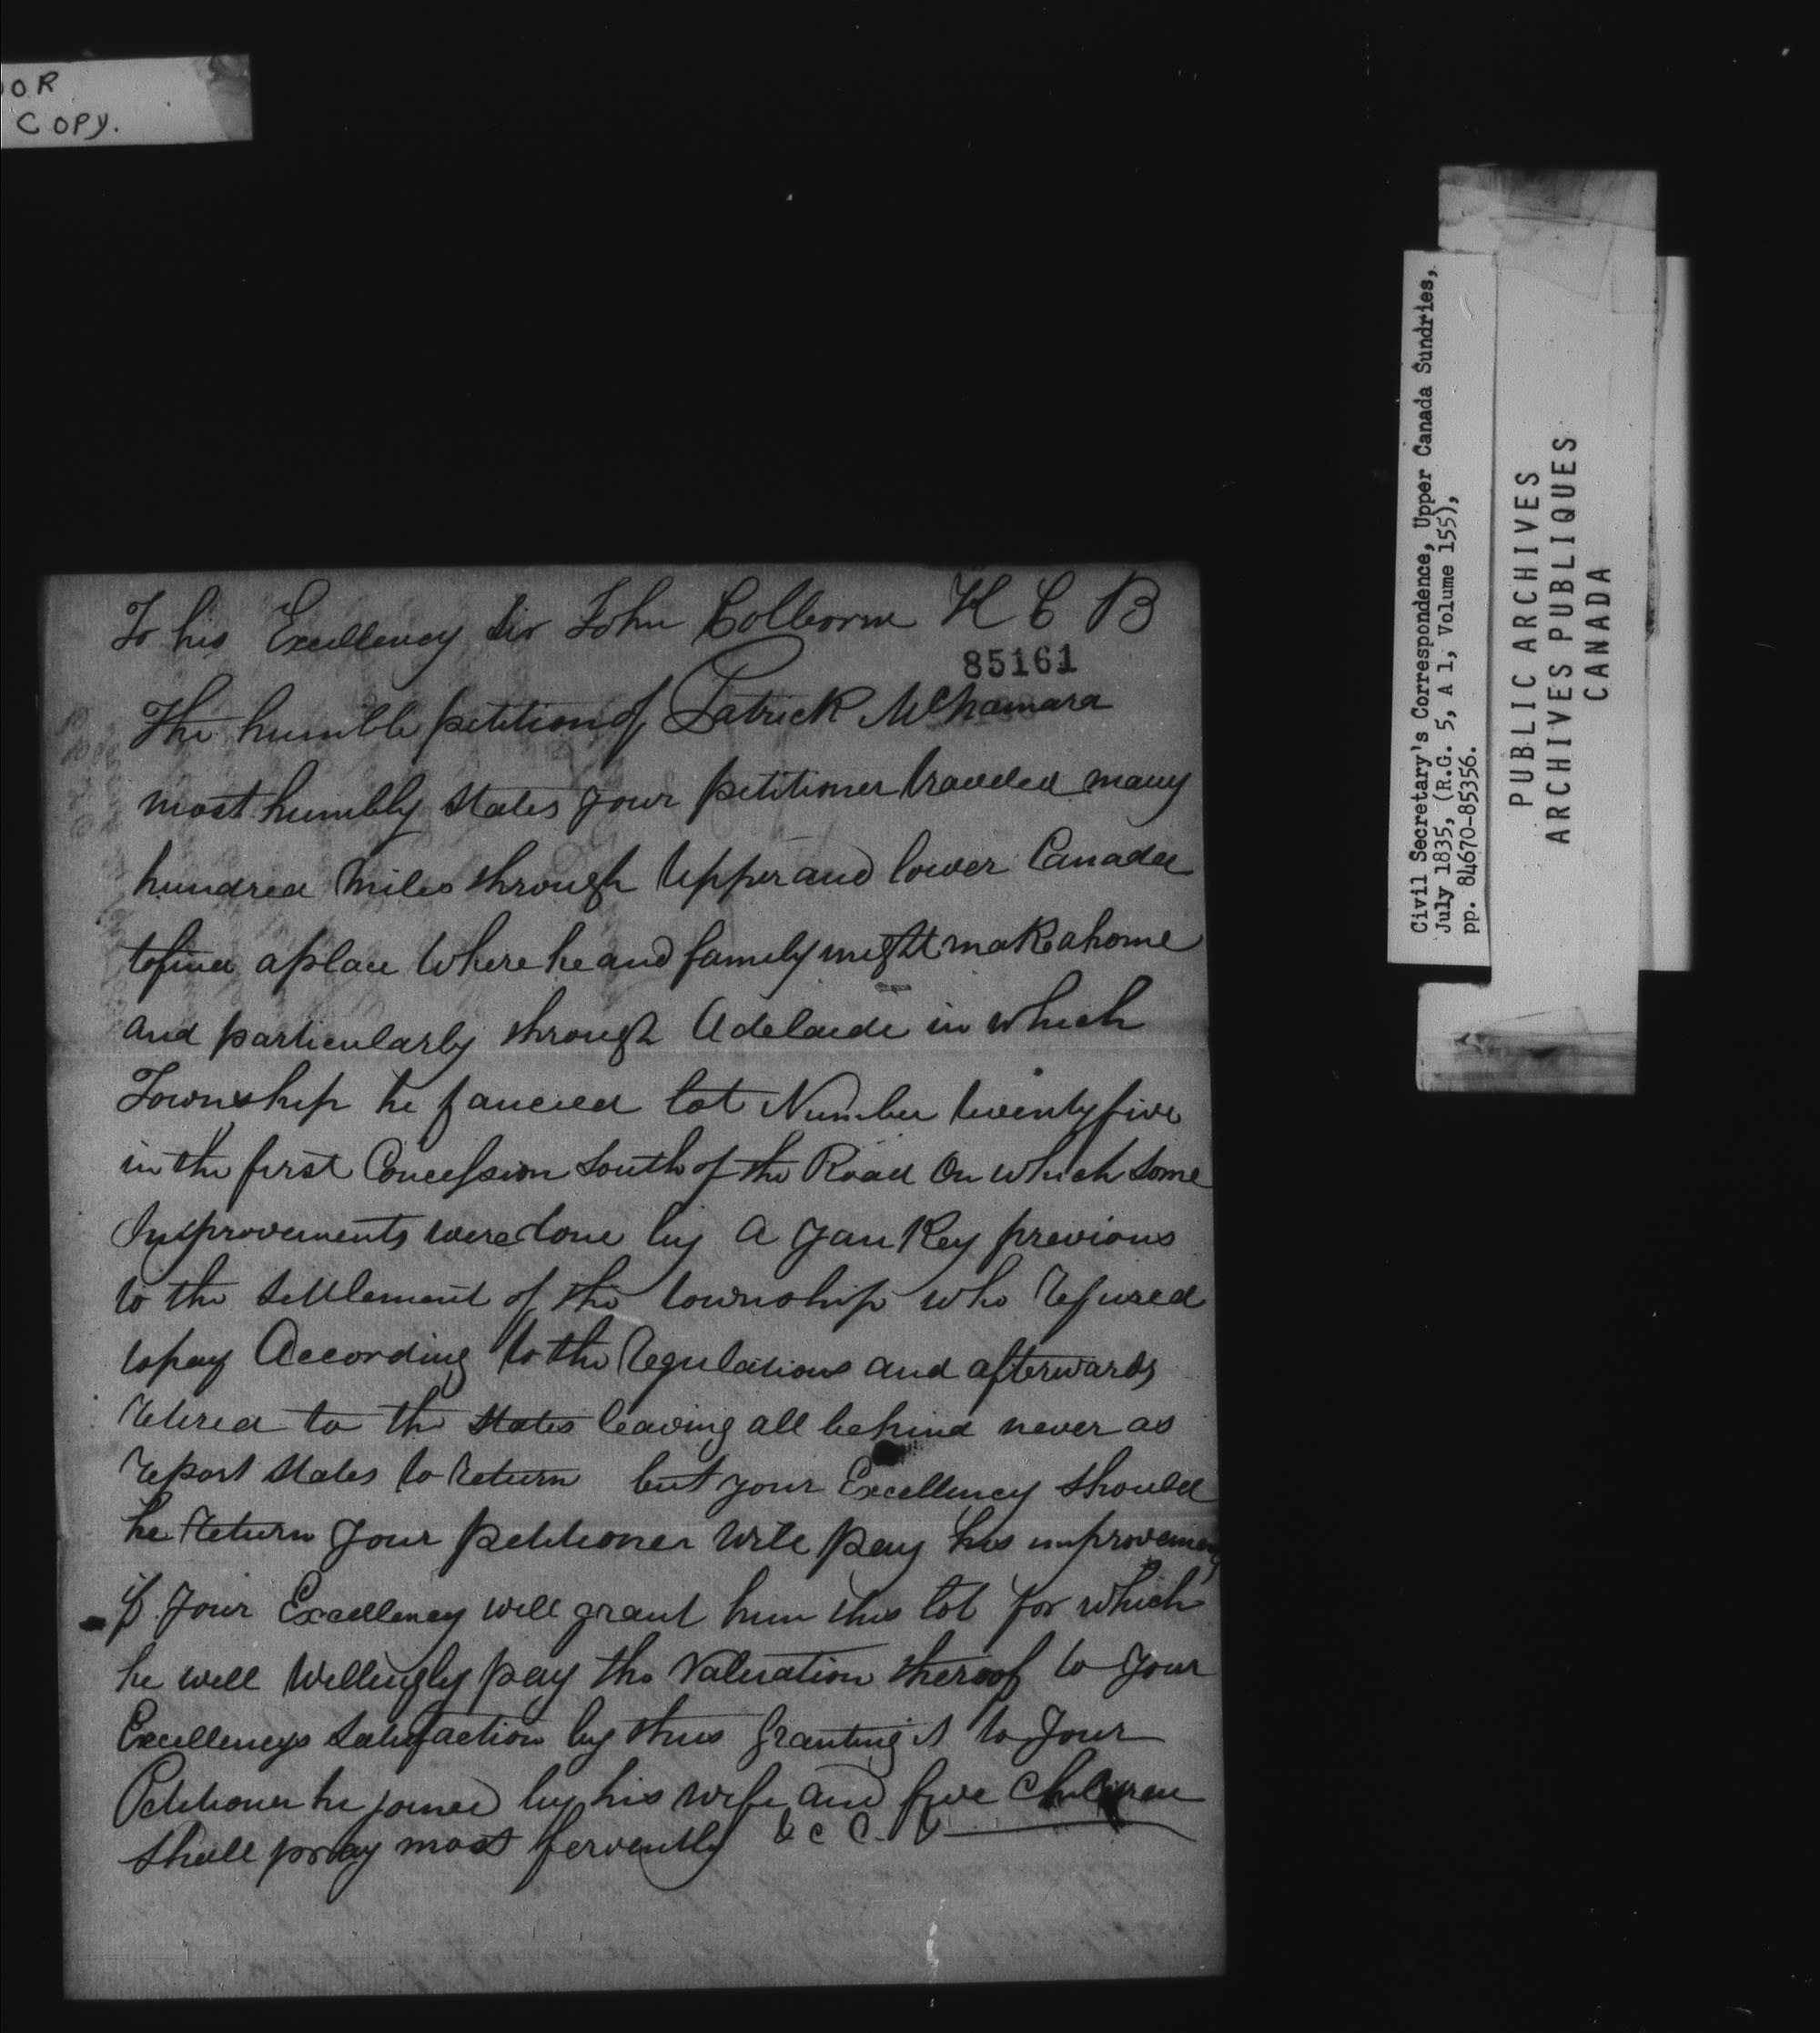 OR
COPY.
To his Excellency Sir John Colborne K C B
85161
The humble petition of Patrick McNamara
most humbly states your petitioner traveled many
hundred Miles through Upper and lower Canada
to find a place Where he and family might make a home
and particularly through Adelaide in which
Township he fancied lot Number twenty five
in the first Concession South of the Road On which Some
Improvements were done by a yankey previous
to the settlement of the township who refused
to pay According to the regulations and afterwards
retired to the states leaving all behind never as
report states to return but your Excellency should
he return your petitioner will pay his improvements
if your Excellency will grant him this lot for which
he will Willingly pay the Valuation thereof to your
Excellencys satisfaction by thus granting it to your
Petitioner he joined by his wife and five Children
shall pray most fervently & c c
Civil Secretary's Correspondence, Upper Canada Sundries,
July 1835, (R.G. 5, A 1, Volume 155),
pp. 84670-85356.
PUBLIC ARCHIVES
ARCHIVES PUBLIQUES
CANADA